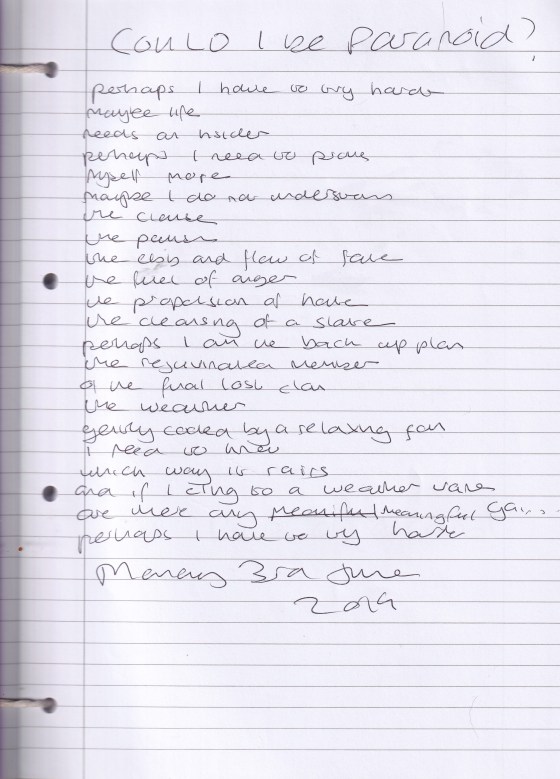 Could I be Paranoid?
perhaps I have to try harder
maybe life
needs an insider
perhaps I need to prove
myself more
maybe I do not understand
the clause
the pause
the ebb and flow of fate
the fuel of anger
the propulsion of hate
the cleansing of a slate
perhaps I am the back up plan
the rejuvinated member
of the final lost clan
the weather
gently cooled by a relaxing fan
I need to know
which way it
and if I cling to a weather vane
are there any meaningful gains
perhaps I have to try harder
Monday 3rd June
2019